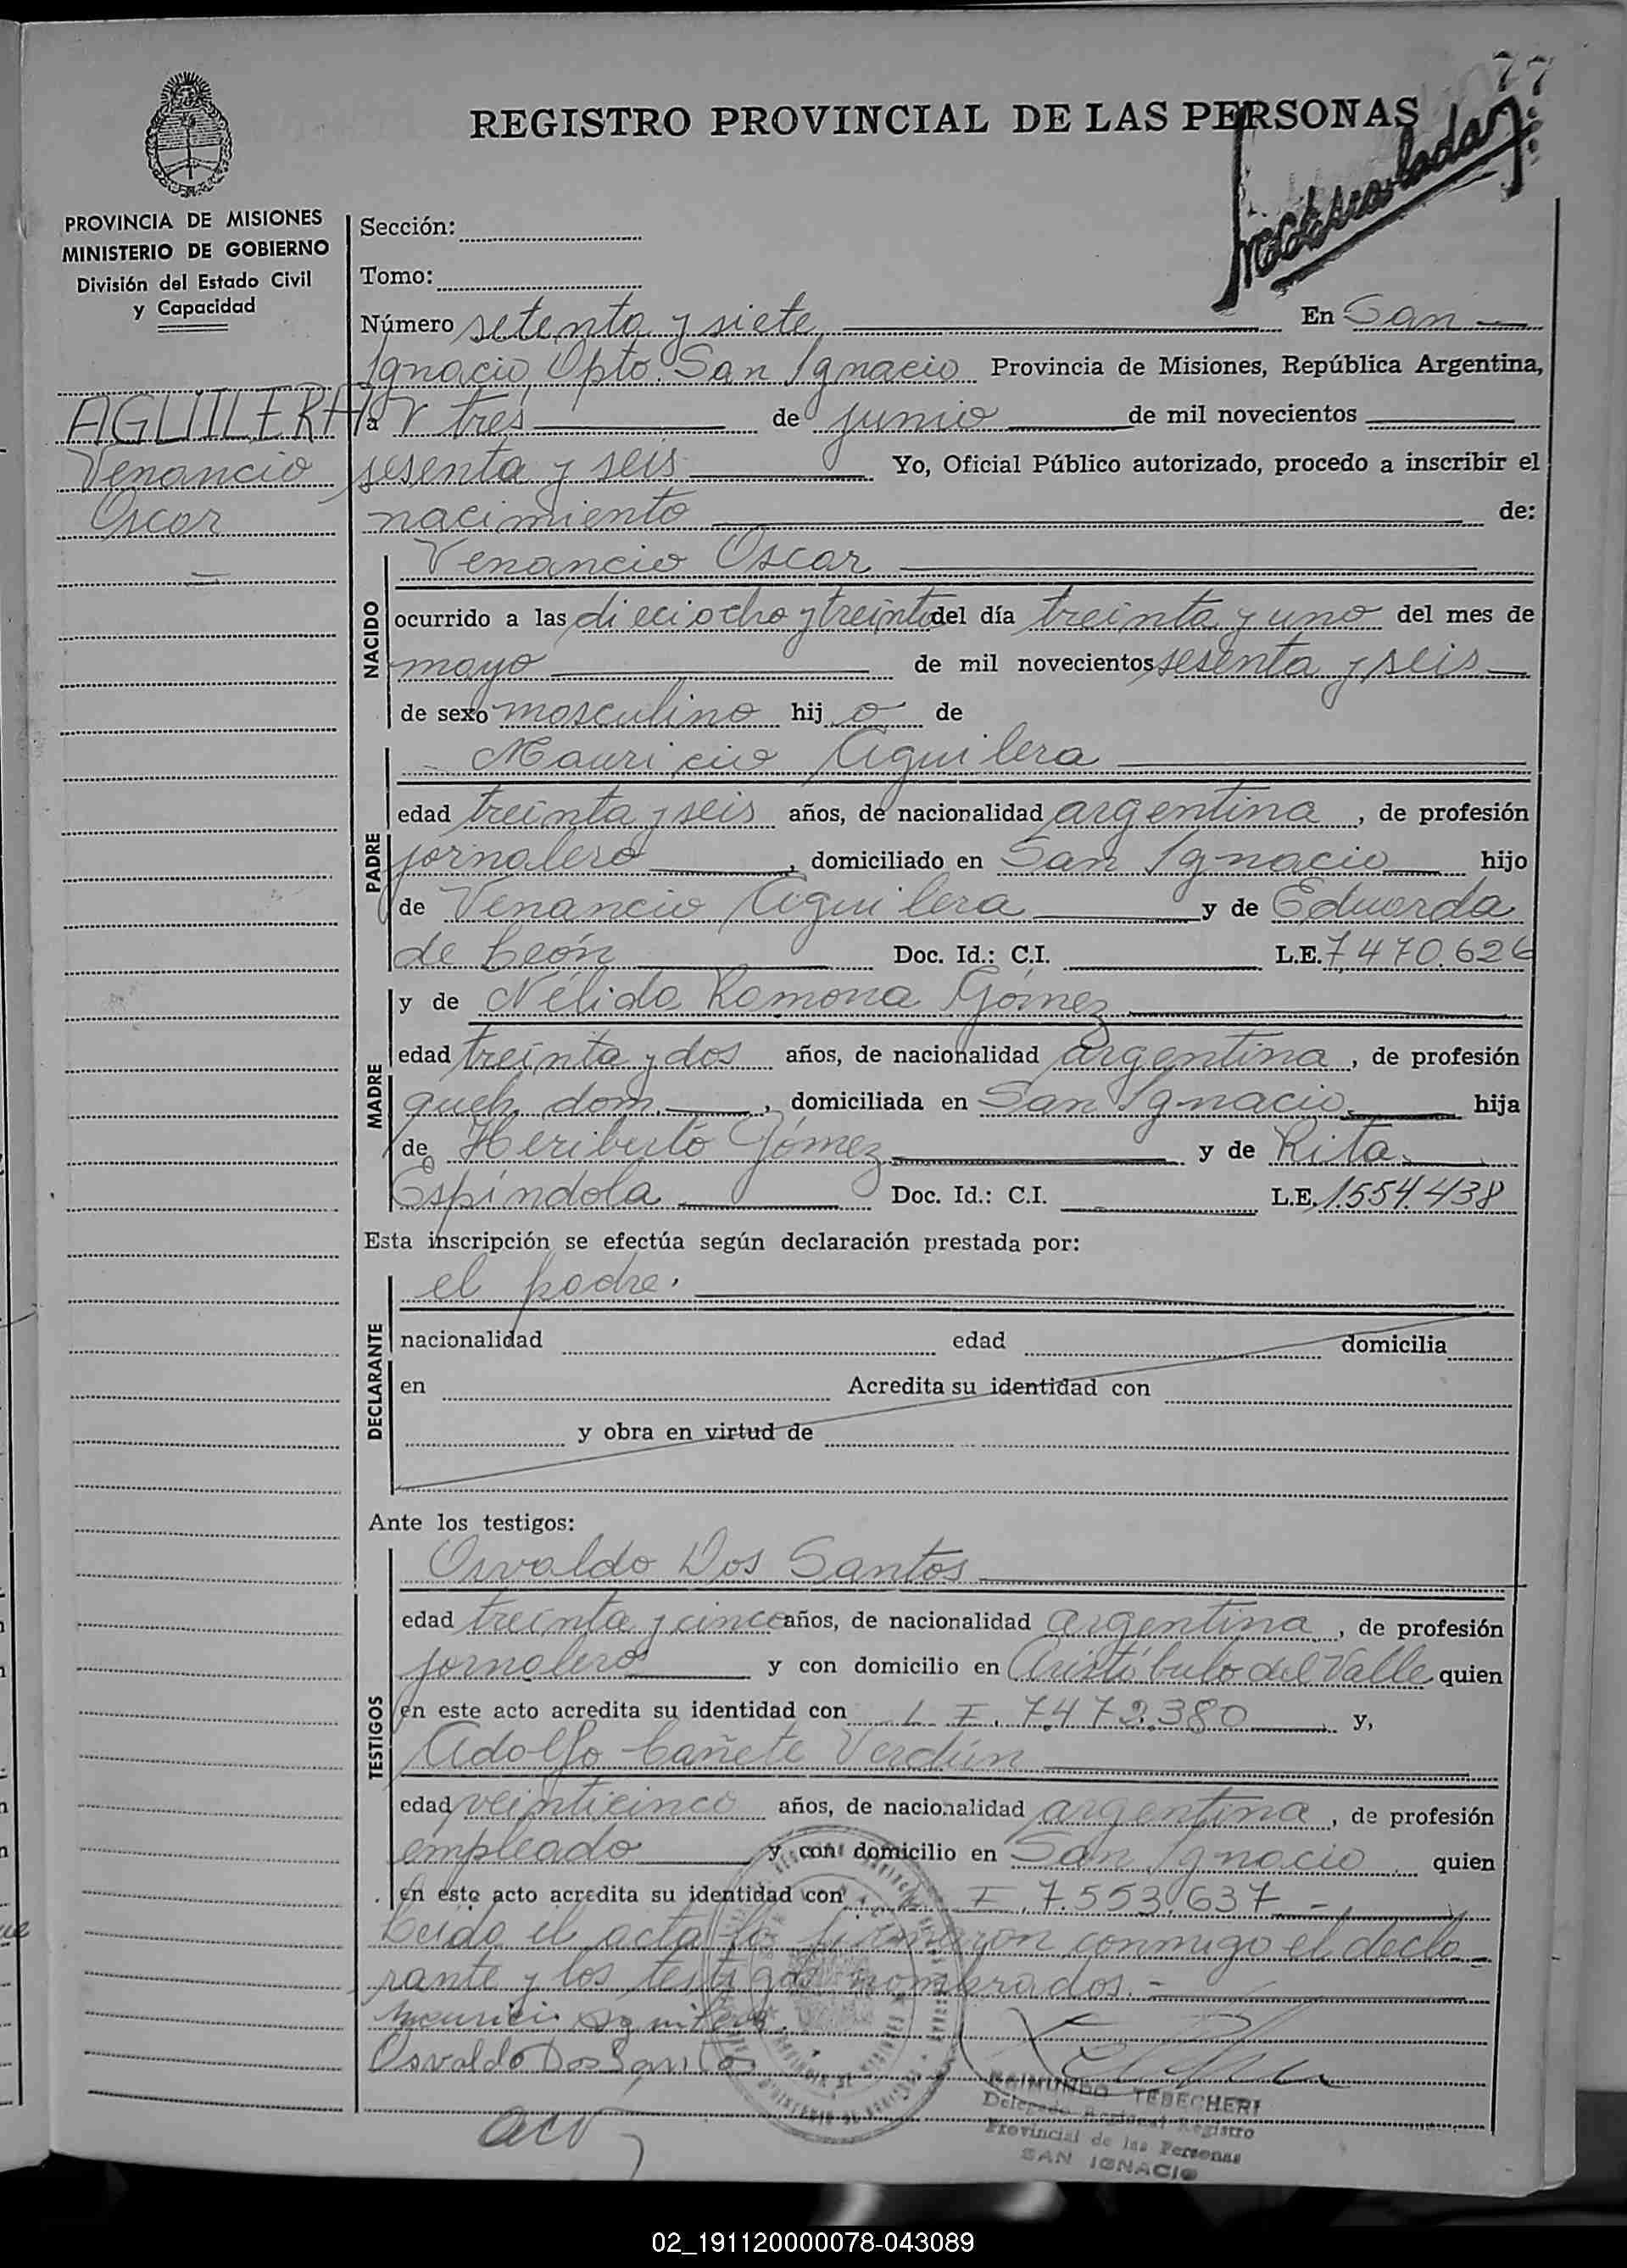 77
REGISTRO PROVINCIAL DE LAS PERSONAS
PROVINCIA DE MISIONES
MINISTERIO DE GOBIERNO
División del Estado Civil
y Capacidad
AGUILERA
Venancio
Oscar
Sección:
Tomo:
Número setenta y siete En San
Ignacio, Dpto. San Ignacio Provincia de Misiones, República Argentina,
a tres de junio de mil novecientos
sesenta y seis Yo, Oficial Público autorizado, procedo a inscribir el
nacimiento de:
NACIDO
Venancio Oscar
ocurrido a las dieciocho y treinta del día treinta y uno del mes de
mayo de mil novecientos sesenta y seis
de sexo masculino hij o de
PADRE
Mauricio Aguilera
edad treinta y seis años, de nacionalidad argentina, de profesión
jornalero, domiciliado en San Ignacio hijo
de Venancio Aguilera y de Eduarda
de León Doc. Id.: C.I. L.E. 7470.626
MADRE
y de Nélida Ramona Gómez
edad treinta y dos años, de nacionalidad argentina, de profesión
queh. dom., domiciliada en San Ignacio hija
de Heriberto Gómez y de Rita
Espíndola Doc. Id.: C.I. L.E. 1.554.438
Esta inscripción se efectúa según declaración prestada por:
DECLARANTE
el padre.
nacionalidad edad domicilia
en Acredita su identidad con
y obra en virtud de
Ante los testigos:
TESTIGOS
Osvaldo Dos Santos
edad treinta y cinco años, de nacionalidad argentina, de profesión
jornalero y con domicilio en Aristóbulo del Valle quien
en este acto acredita su identidad con 7.472.380 y,
Adolfo Cañete Verdún
edad veinticinco años, de nacionalidad argentina, de profesión
empleado y con domicilio en San Ignacio quien
en este acto acredita su identidad con 7.553.637
Leida el acta la firmaron conmigo el decla-
rante y los testigos nombrados.-
Mauricio Aguilera
Osvaldo Dos Santos
RAIMUNDO TEBECHERI
Delegado Registro
Provincial de las Personas
SAN IGNACIO
02_191120000078-043089